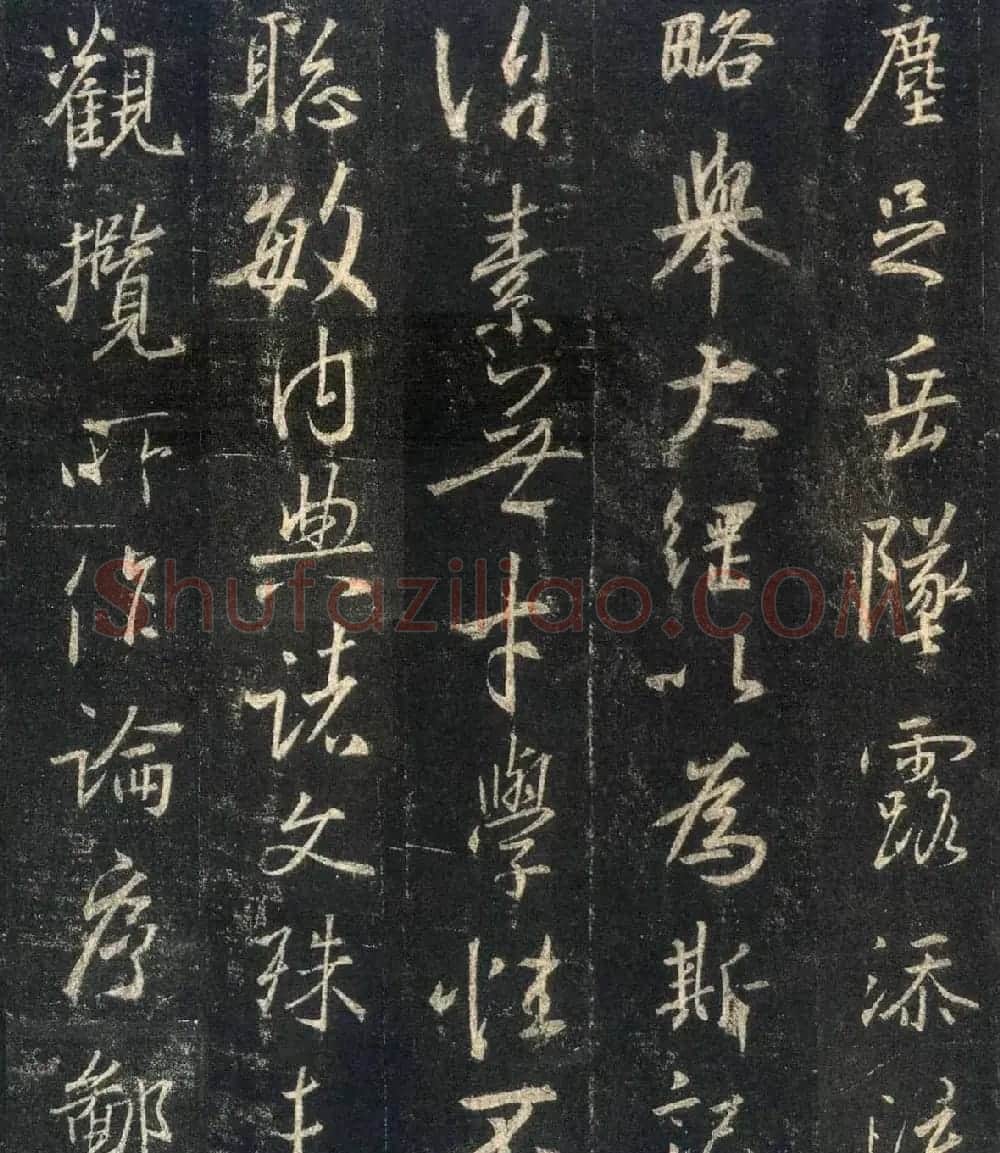 塵足岳墜露添流
略舉大綱以為斯記
治素無才學性不
聡敏内典諸文殊未
觀攬所作論序鄙
Shufaziliao.COM